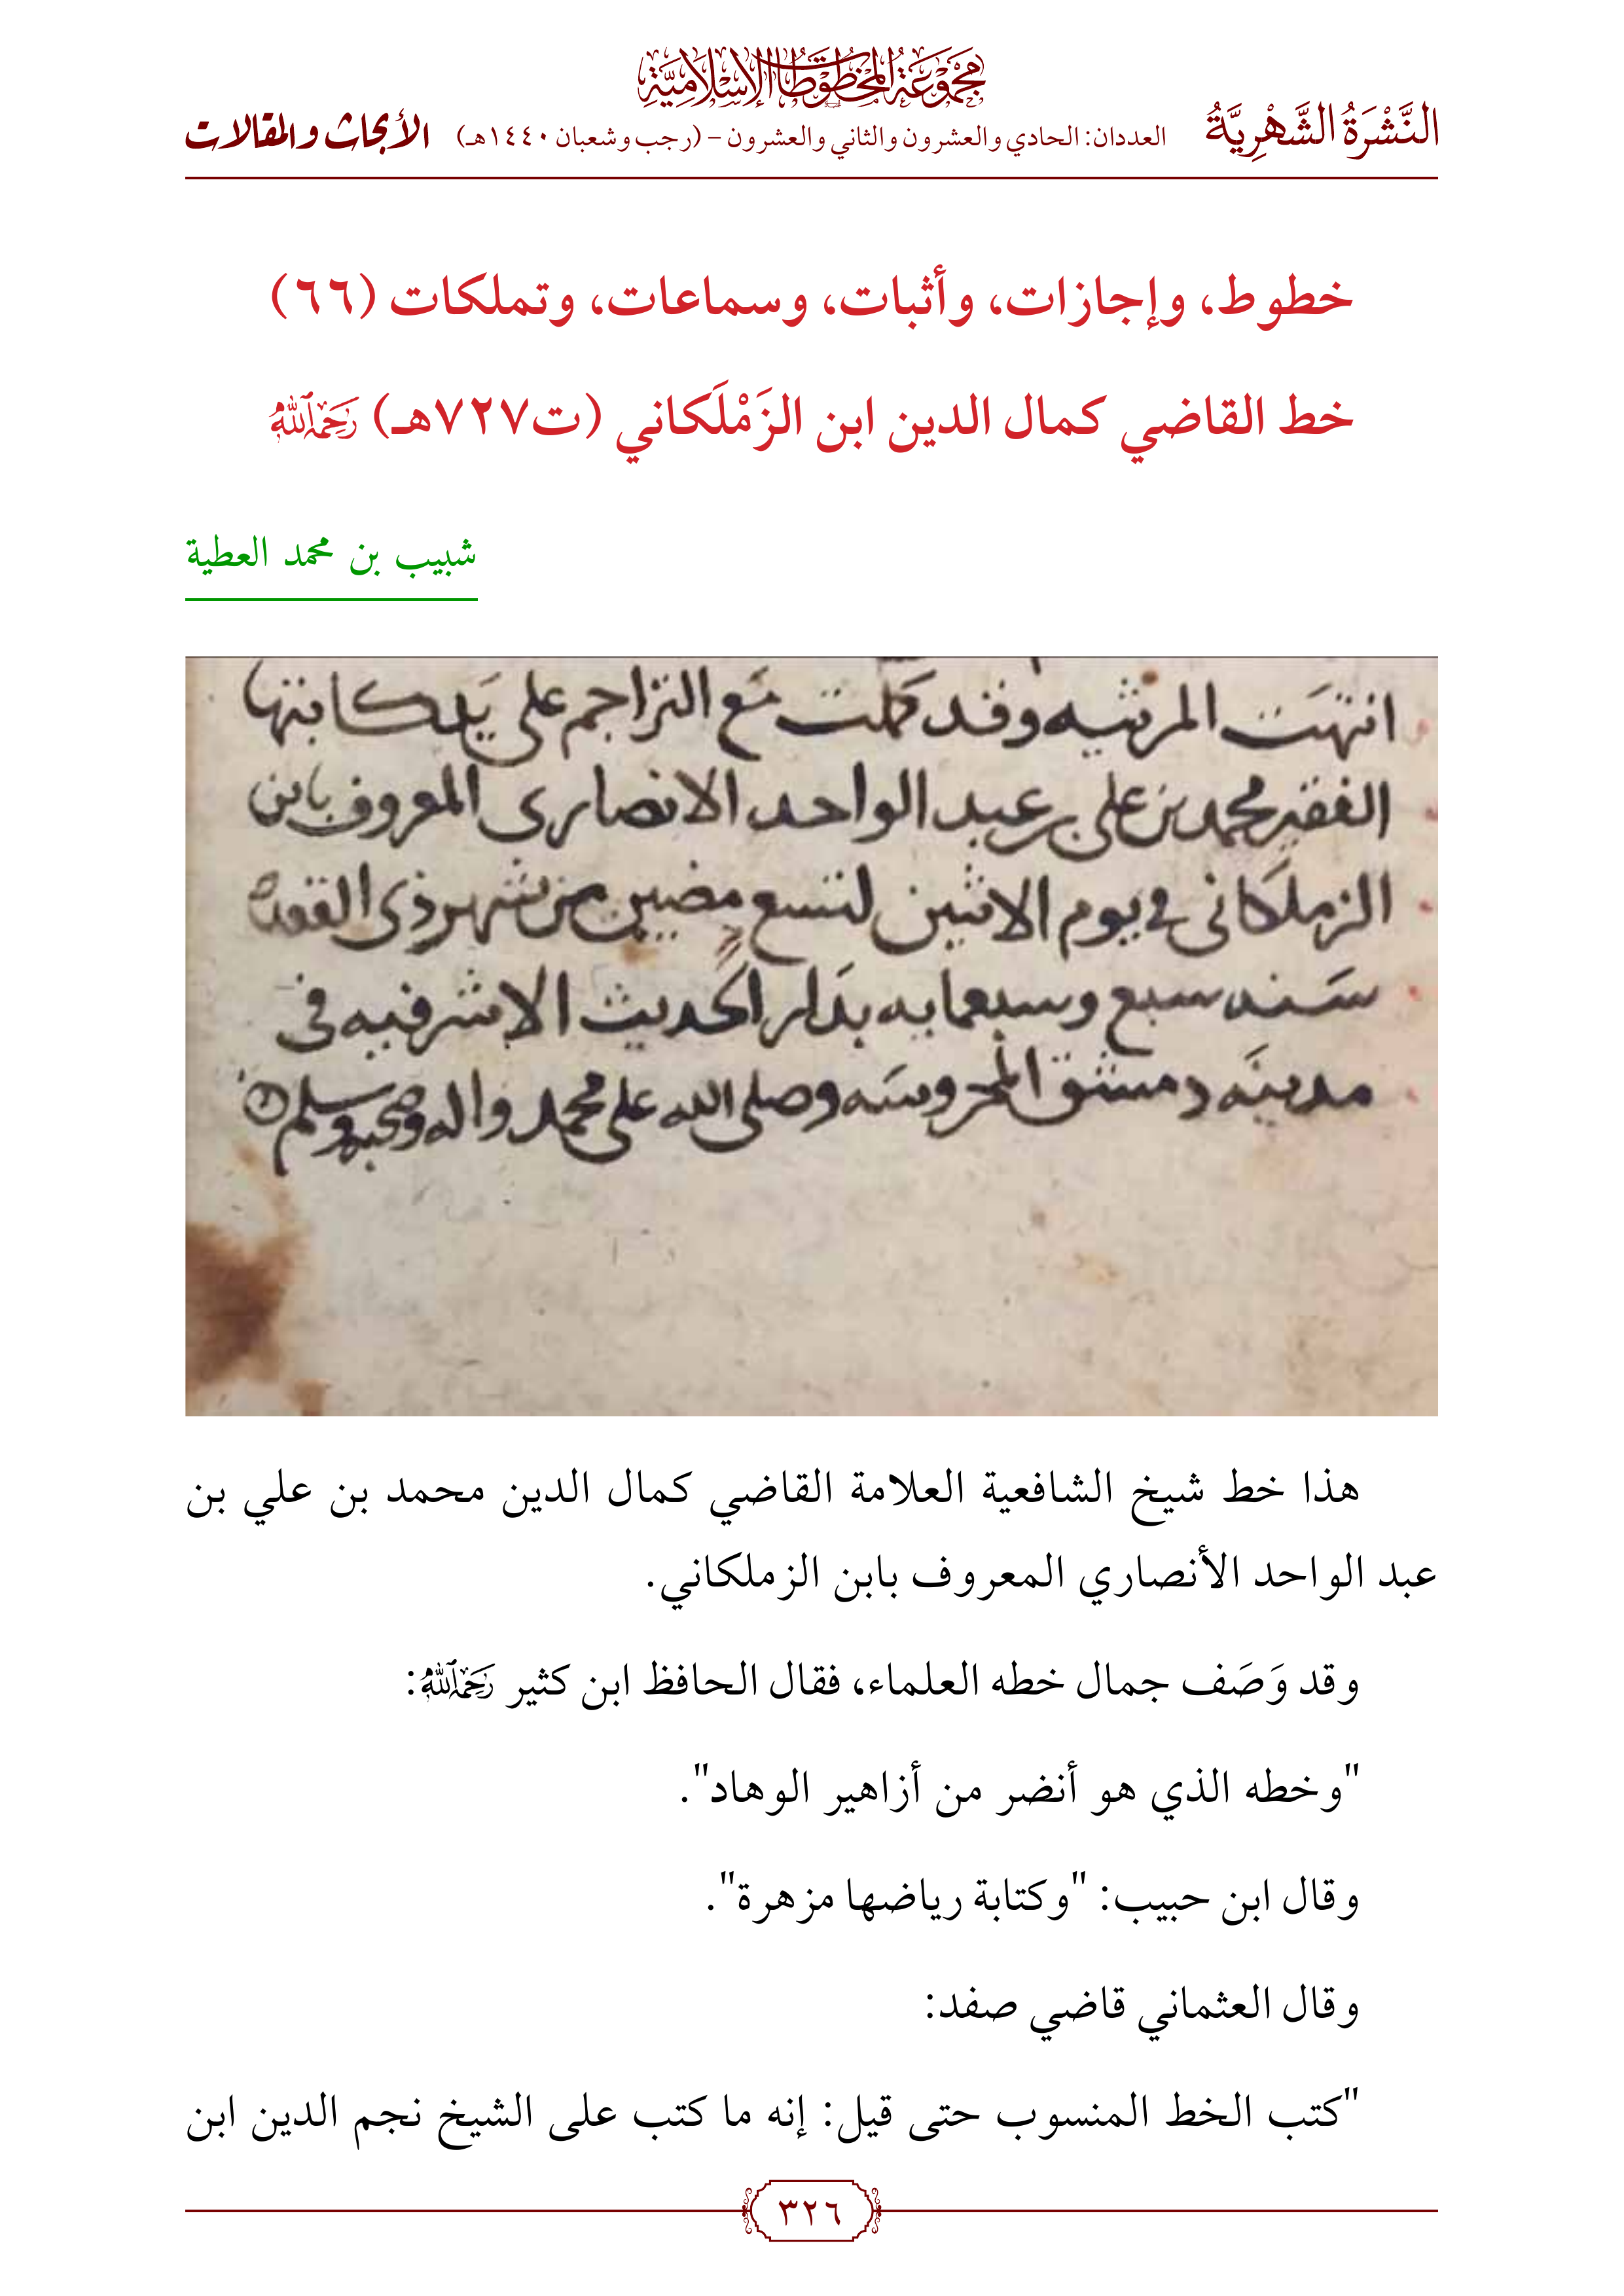 مجموعة المخطوطات الإسلامية
النَّشْرَةُ الشَّهْرِيَّةُ العددان: الحادي والعشرون والثاني والعشرون – (رجب وشعبان ١٤٤٠هـ) الأبحاث والمقالات
خطوط، وإجازات، وأثبات، وسماعات، وتملكات (٦٦)
خط القاضي كمال الدين ابن الزَمْلَكاني (ت٧٢٧هـ) رَحِمَهُ اللَّهُ
شبيب بن محمد العطية
انتهت المرثيه وقد كملت مع التراجم على يد كاتبها
الفقير محمد بن علي بن عبد الواحد الانصارى المعروف بابن
الزملكانى في يوم الاثنين لتسع مضين من شهر ذى القعده
سنه سبع وسبعمايه بدار الحديث الاشرفيه فى
مدينه دمشق المحروسه وصلى الله على محمد واله وصحبه وسلم
هذا خط شيخ الشافعية العلامة القاضي كمال الدين محمد بن علي بن
عبد الواحد الأنصاري المعروف بابن الزملكاني.
وقد وَصَف جمال خطه العلماء، فقال الحافظ ابن كثير رَحِمَهُ اللَّهُ:
"وخطه الذي هو أنضر من أزاهير الوهاد".
وقال ابن حبيب: "وكتابة رياضها مزهرة".
وقال العثماني قاضي صفد:
"كتب الخط المنسوب حتى قيل: إنه ما كتب على الشيخ نجم الدين ابن
٣٢٦